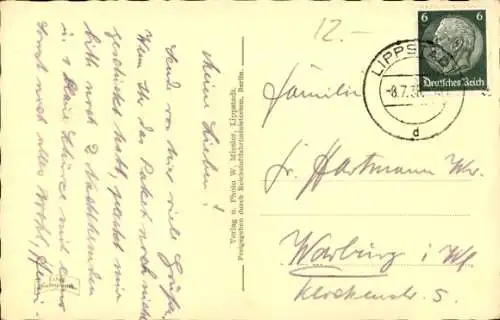 Meine Lieben!
Send von mir viele Grüße.
Wenn Ihr das Paket noch nicht
geschickt habt, packt mir
bitte noch 2 Nachthemden
in 1 kleine Schürze mit
Sonst noch alles wohl,
Verlag u. Photo W. Lippstadt.
Freigegeben durch Reichsluftfahrtministerium, Berlin.
12.-
6 6
Deutsches Reich
LIPPSTADT
-8.7.38
d
Familie
Fr. Hartmann Ww.
Warburg i. Wf.
Klockenstr. 5.